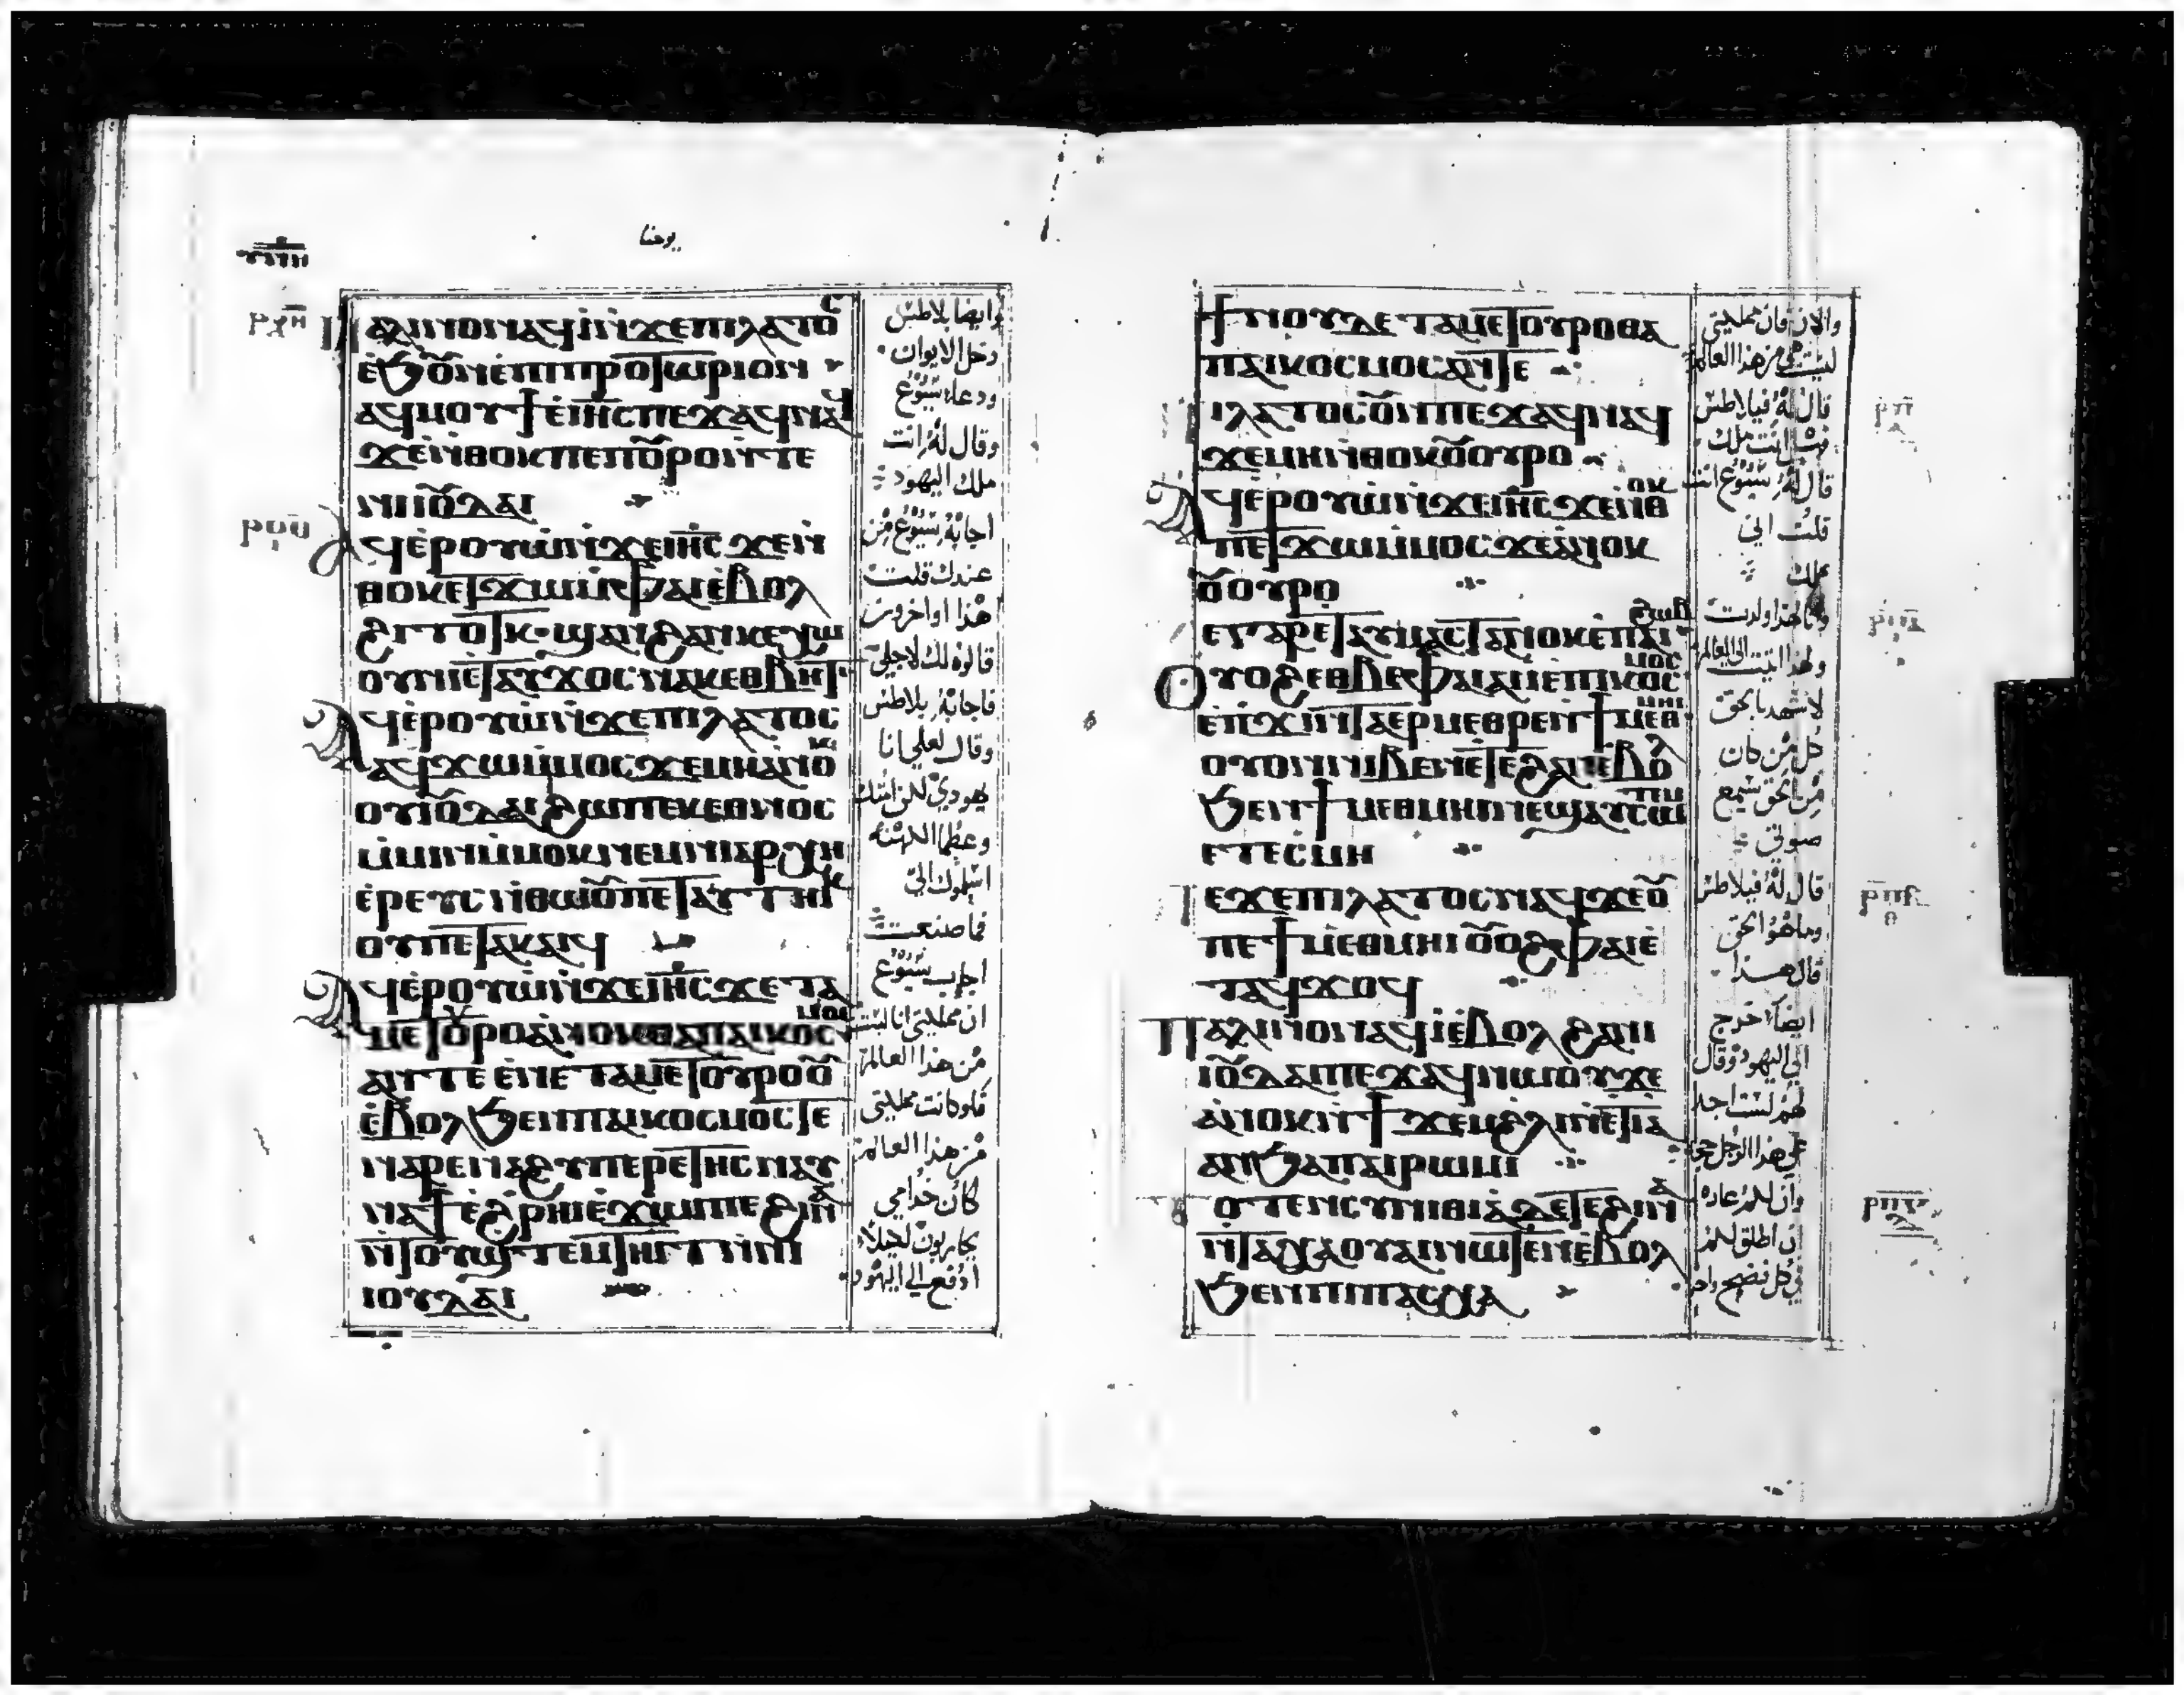 يوحنا
ⲡⲁⲗⲓⲛ ⲟⲛ ⲁϥⲓ ⲛϫⲉ ⲡⲓⲗⲁⲧⲟⲥ
ⲉϧⲟⲩⲛ ⲉⲡⲓⲡⲣⲉⲧⲱⲣⲓⲟⲛ
ⲁϥⲙⲟⲩϯ ⲉⲓⲏⲥ ⲡⲉϫⲁϥ ⲛⲁϥ
ϫⲉ ⲛⲑⲟⲕ ⲡⲉ ⲡⲟⲩⲣⲟ ⲛⲧⲉ
ⲛⲓⲓⲟⲩⲇⲁⲓ
ⲁϥⲉⲣⲟⲩⲱ ⲛϫⲉ ⲓⲏⲥ ϫⲉ ⲛ
ⲑⲟⲕ ⲉⲧϫⲱ ⲙⲫⲁⲓ ⲉⲃⲟⲗ
ϩⲓⲧⲟⲧⲕ ϣⲁⲛ ϩⲁⲛⲕⲉⲭⲱ
ⲟⲩⲛⲓ ⲡⲉⲧⲁⲩϫⲟⲥ ⲛⲁⲕ ⲉⲑⲃⲏⲧ
ⲁϥⲉⲣⲟⲩⲱ ⲛϫⲉ ⲡⲓⲗⲁⲧⲟⲥ
ⲉϥϫⲱ ⲙⲙⲟⲥ ϫⲉ ⲙⲏ ⲁⲛⲟⲕ
ⲟⲩⲓⲟⲩⲇⲁⲓ ϩⲱ ⲡⲉⲕⲉⲑⲛⲟⲥ
ⲙⲙⲓⲛ ⲙⲙⲟⲕ ⲛⲉⲙ ⲛⲓⲁⲣⲭⲏ
ⲉⲣⲉⲩⲥ ⲛⲑⲱⲟⲩ ⲡⲉⲧⲁⲩⲧⲏⲓⲕ
ⲟⲩ ⲡⲉⲧⲁⲕⲁⲓϥ
ⲁϥⲉⲣⲟⲩⲱ ⲛϫⲉ ⲓⲏⲥ ϫⲉ ⲧⲁ
ⲙⲉⲧⲟⲩⲣⲟ ⲁⲛⲟⲕ ⲑⲁ ⲡⲁⲓⲕⲟⲥⲙⲟⲥ
ⲁⲛ ⲧⲉ ⲉⲛⲉ ⲧⲁⲙⲉⲧⲟⲩⲣⲟ ⲟⲩ
ⲉⲃⲟⲗ ϧⲉⲛ ⲡⲁⲓⲕⲟⲥⲙⲟⲥ ⲧⲉ
ⲛⲁⲣⲉ ⲛⲁϩⲩⲡⲉⲣⲉⲧⲏⲥ ⲛⲁⲩ
ⲛⲁϯ ⲉϩⲣⲏⲓ ⲉϫⲱⲓ ⲡⲉ ϩⲓⲛⲁ
ⲛⲧⲟⲩϣⲧⲉⲙⲧⲏⲓⲧ ⲛⲛⲓ
ⲓⲟⲩⲇⲁⲓ
وايضا بلاطس
دخل الايوان
ودعا يسوع
وقال له انت
ملك اليهود
اجابه يسوع من
عندك قلت
هذا او اخرون
قالوه لك لاجلي
فاجابه بلاطس
وقال لعلي انا
يهودي لكن امتك
وعظما الكهنه
اسلموك الي
فما صنعت
اجاب يسوع
ان مملكتي انا ليست
من هذا العالم
فلو كانت مملكتي
من هذا العالم
كان خدامي
يحاربون لكيلا
ادفع الي اليهود
ϯⲛⲟⲩ ⲇⲉ ⲧⲁⲙⲉⲧⲟⲩⲣⲟ ⲑⲁ
ⲡⲁⲓⲕⲟⲥⲙⲟⲥ ⲁⲛ ⲧⲉ
ⲡⲓⲗⲁⲧⲟⲥ ⲟⲩⲛ ⲡⲉϫⲁϥ ⲛⲁϥ
ϫⲉ ⲙⲏ ⲛⲑⲟⲕ ⲟⲩⲟⲩⲣⲟ
ⲁϥⲉⲣⲟⲩⲱ ⲛϫⲉ ⲓⲏⲥ ϫⲉ ⲛⲑⲟⲕ
ⲡⲉⲧϫⲱ ⲙⲙⲟⲥ ϫⲉ ⲁⲛⲟⲕ
ⲟⲩⲟⲩⲣⲟ
ⲉⲧⲁⲣⲉ ⲧⲁⲙⲁⲥⲧ ⲁⲛⲟⲕ ⲉⲡⲁⲓϩⲱⲃ
ⲟⲩⲟϩ ⲉⲑⲃⲉ ⲫⲁⲓ ⲁⲓⲓ ⲉⲡⲓⲕⲟⲥⲙⲟⲥ
ⲉⲡϫⲓⲛⲧⲁⲉⲣⲙⲉⲑⲣⲉ ⲛϯⲙⲉⲑⲙⲏⲓ
ⲟⲩⲟⲛ ⲛⲓⲃⲉⲛ ⲉⲧⲉ ϩⲁⲛⲉⲃⲟⲗ
ϧⲉⲛ ϯⲙⲉⲑⲙⲏⲓ ⲛⲉ ϣⲁⲩⲥⲱⲧⲉⲙ
ⲉⲧⲉⲥⲙⲏ
ⲡⲉϫⲉ ⲡⲓⲗⲁⲧⲟⲥ ⲛⲁϥ ϫⲉ ⲟⲩ
ⲡⲉ ϯⲙⲉⲑⲙⲏⲓ ⲟⲩⲟϩ ⲫⲁⲓ ⲉ
ⲧⲁϥϫⲟϥ
ⲡⲁⲗⲓⲛ ⲟⲛ ⲁϥⲓ ⲉⲃⲟⲗ ϩⲁ ⲛⲓ
ⲓⲟⲩⲇⲁⲓ ⲡⲉϫⲁϥ ⲛⲱⲟⲩ ϫⲉ
ⲁⲛⲟⲕ ⲛϯϫⲉⲙ ϩⲗⲓ ⲛⲉⲧⲓⲁ
ⲁⲛ ϧⲁ ⲡⲁⲓⲣⲱⲙⲓ
ⲟⲩⲟⲛⲧⲉⲛ ⲥⲩⲛⲏⲑⲓⲁ ⲇⲉ ⲧⲉ ϩⲓⲛⲁ
ⲛⲧⲁⲭⲁ ⲟⲩⲁⲓ ⲛⲱⲧⲉⲛ ⲉⲃⲟⲗ
ϧⲉⲛ ⲡⲓⲡⲁⲥⲭⲁ
والان فان مملكتي
ليست هي من هذا العالم
قال له فيلاطس
انت ملك
قال له يسوع انت
قلت اني
ملك
ولهذا ولدت
ولهذا اتيت الي العالم
لاشهد بالحق
كل من كان
من الحق يسمع
صوتي
قال له فيلاطس
وما هو الحق
قال هذا
ايضا خرج
الي اليهود وقال
لهم لست اجد
علي هذا الرجل
وان لكم عاده
ان اطلق لكم
في كل فصح واحد